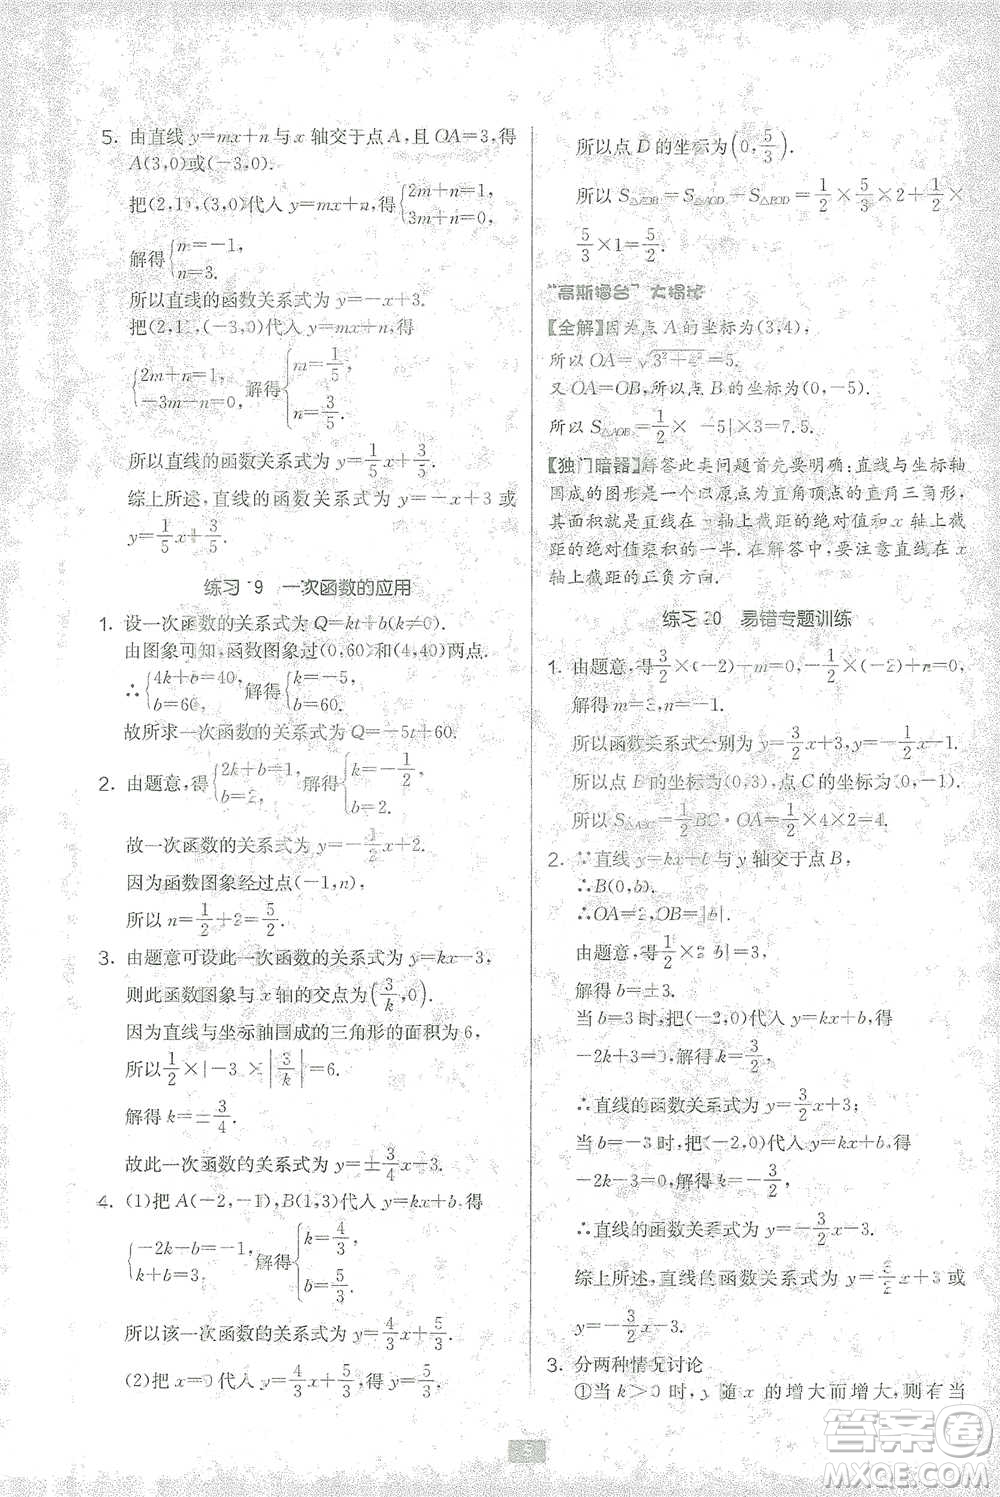 5. 由直线 y=mx+n 与 x 轴交于点 A,且 OA=3,得
A(3,0)或(-3,0).
把(2,1),(3,0)代入 y=mx+n,得{2m+n=1, 3m+n=0,
解得{m=-1, n=3.
所以直线的函数关系式为 y=-x+3.
把(2,1),(-3,0)代入 y=mx+n,得
{2m+n=1, -3m+n=0, 解得{m=1/5, n=3/5.
所以直线的函数关系式为 y=1/5x+3/5.
综上所述,直线的函数关系式为 y=-x+3 或
y=1/5x+3/5.
练习 19 一次函数的应用
1. 设一次函数的关系式为 Q=kt+b(k≠0).
由图象可知,函数图象过(0,60)和(4,40)两点.
∴{4k+b=40, b=60, 解得{k=-5, b=60.
故所求一次函数的关系式为 Q=-5t+60.
2. 由题意,得{2k+b=1, b=2, 解得{k=-1/2, b=2.
故一次函数的关系式为 y=-1/2x+2.
因为函数图象经过点(-1,n),
所以 n=1/2+2=5/2.
3. 由题意可设此一次函数的关系式为 y=kx-3,
则此函数图象与 x 轴的交点为(3/k,0).
因为直线与坐标轴围成的三角形的面积为 6,
所以1/2×|-3|×|3/k|=6.
解得 k=±3/4.
故此一次函数的关系式为 y=±3/4x-3.
4. (1)把 A(-2,-1),B(1,3)代入 y=kx+b,得
{-2k+b=-1, k+b=3, 解得{k=4/3, b=5/3.
所以该一次函数的关系式为 y=4/3x+5/3.
(2)把 x=0 代入 y=4/3x+5/3,得 y=5/3.
所以点 D 的坐标为(0,5/3).
所以 S△AOB=S△AOD+S△BOD=1/2×5/3×2+1/2×
5/3×1=5/2.
“高斯擂台”大揭秘
【全解】因为点 A 的坐标为(3,4),
所以 OA=√3²+4²=5.
又 OA=OB,所以点 B 的坐标为(0,-5).
所以 S△AOB=1/2×|-5|×3=7.5.
【独门暗器】解答此类问题首先要明确:直线与坐标轴
围成的图形是一个以原点为直角顶点的直角三角形,
其面积就是直线在 y 轴上截距的绝对值和 x 轴上截
距的绝对值乘积的一半.在解答中,要注意直线在 x
轴上截距的正负方向.
练习 20 易错专题训练
1. 由题意,得3/2×(-2)+m=0,-1/2×(-2)+n=0,
解得 m=3,n=-1.
所以函数关系式分别为 y=3/2x+3,y=-1/2x-1.
所以点 B 的坐标为(0,3),点 C 的坐标为(0,-1).
所以 S△ABC=1/2BC·OA=1/2×4×2=4.
2. ∵直线 y=kx+b 与 y 轴交于点 B,
∴B(0,b).
∴OA=2,OB=|b|.
由题意,得1/2×2×|b|=3,
解得 b=±3.
当 b=3 时,把(-2,0)代入 y=kx+b,得
-2k+3=0,解得 k=3/2.
∴直线的函数关系式为 y=3/2x+3;
当 b=-3 时,把(-2,0)代入 y=kx+b,得
-2k-3=0,解得 k=-3/2.
∴直线的函数关系式为 y=-3/2x-3.
综上所述,直线的函数关系式为 y=3/2x+3 或
y=-3/2x-3.
3. 分两种情况讨论
①当 k>0 时,y 随 x 的增大而增大,则有当
5
答案卷
MXQE.COM